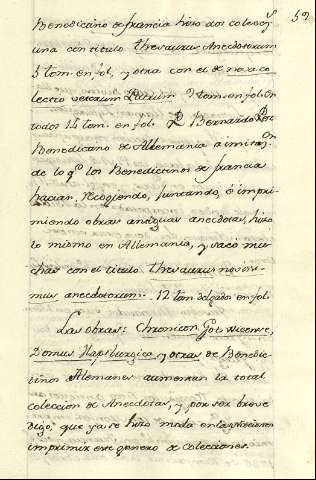 52
Benedictino de francia hizo dos colecc.s
una con titulo thesaurus Anecdotorum
5 tom. en fol. y otra con el de nova co
lectio veterum 9 tom. en fol. en
todos 14 tom. en fol. P. Bernardo Pez
Benedictino de Allemania a imitac.on
de lo q.e los Benedictinos de francia
hacian, recogiendo, juntando, è impri
miendo obras antiguas anecdotas, hizo
lo mismo en Allemania, y sacó mu
chas con el titulo thesaurus novissi-
mus anecdotorum. 12 tom delgados en fol.
Las obras: Chronicon Gotwicense,
Domus Hapsburgica, y otras de Benedic
tinos Alemanes aumentan la total
coleccion de Anecdotas, y por ser breve
digo, que ya se hizo moda en las
imprimir este genero de colecciones.